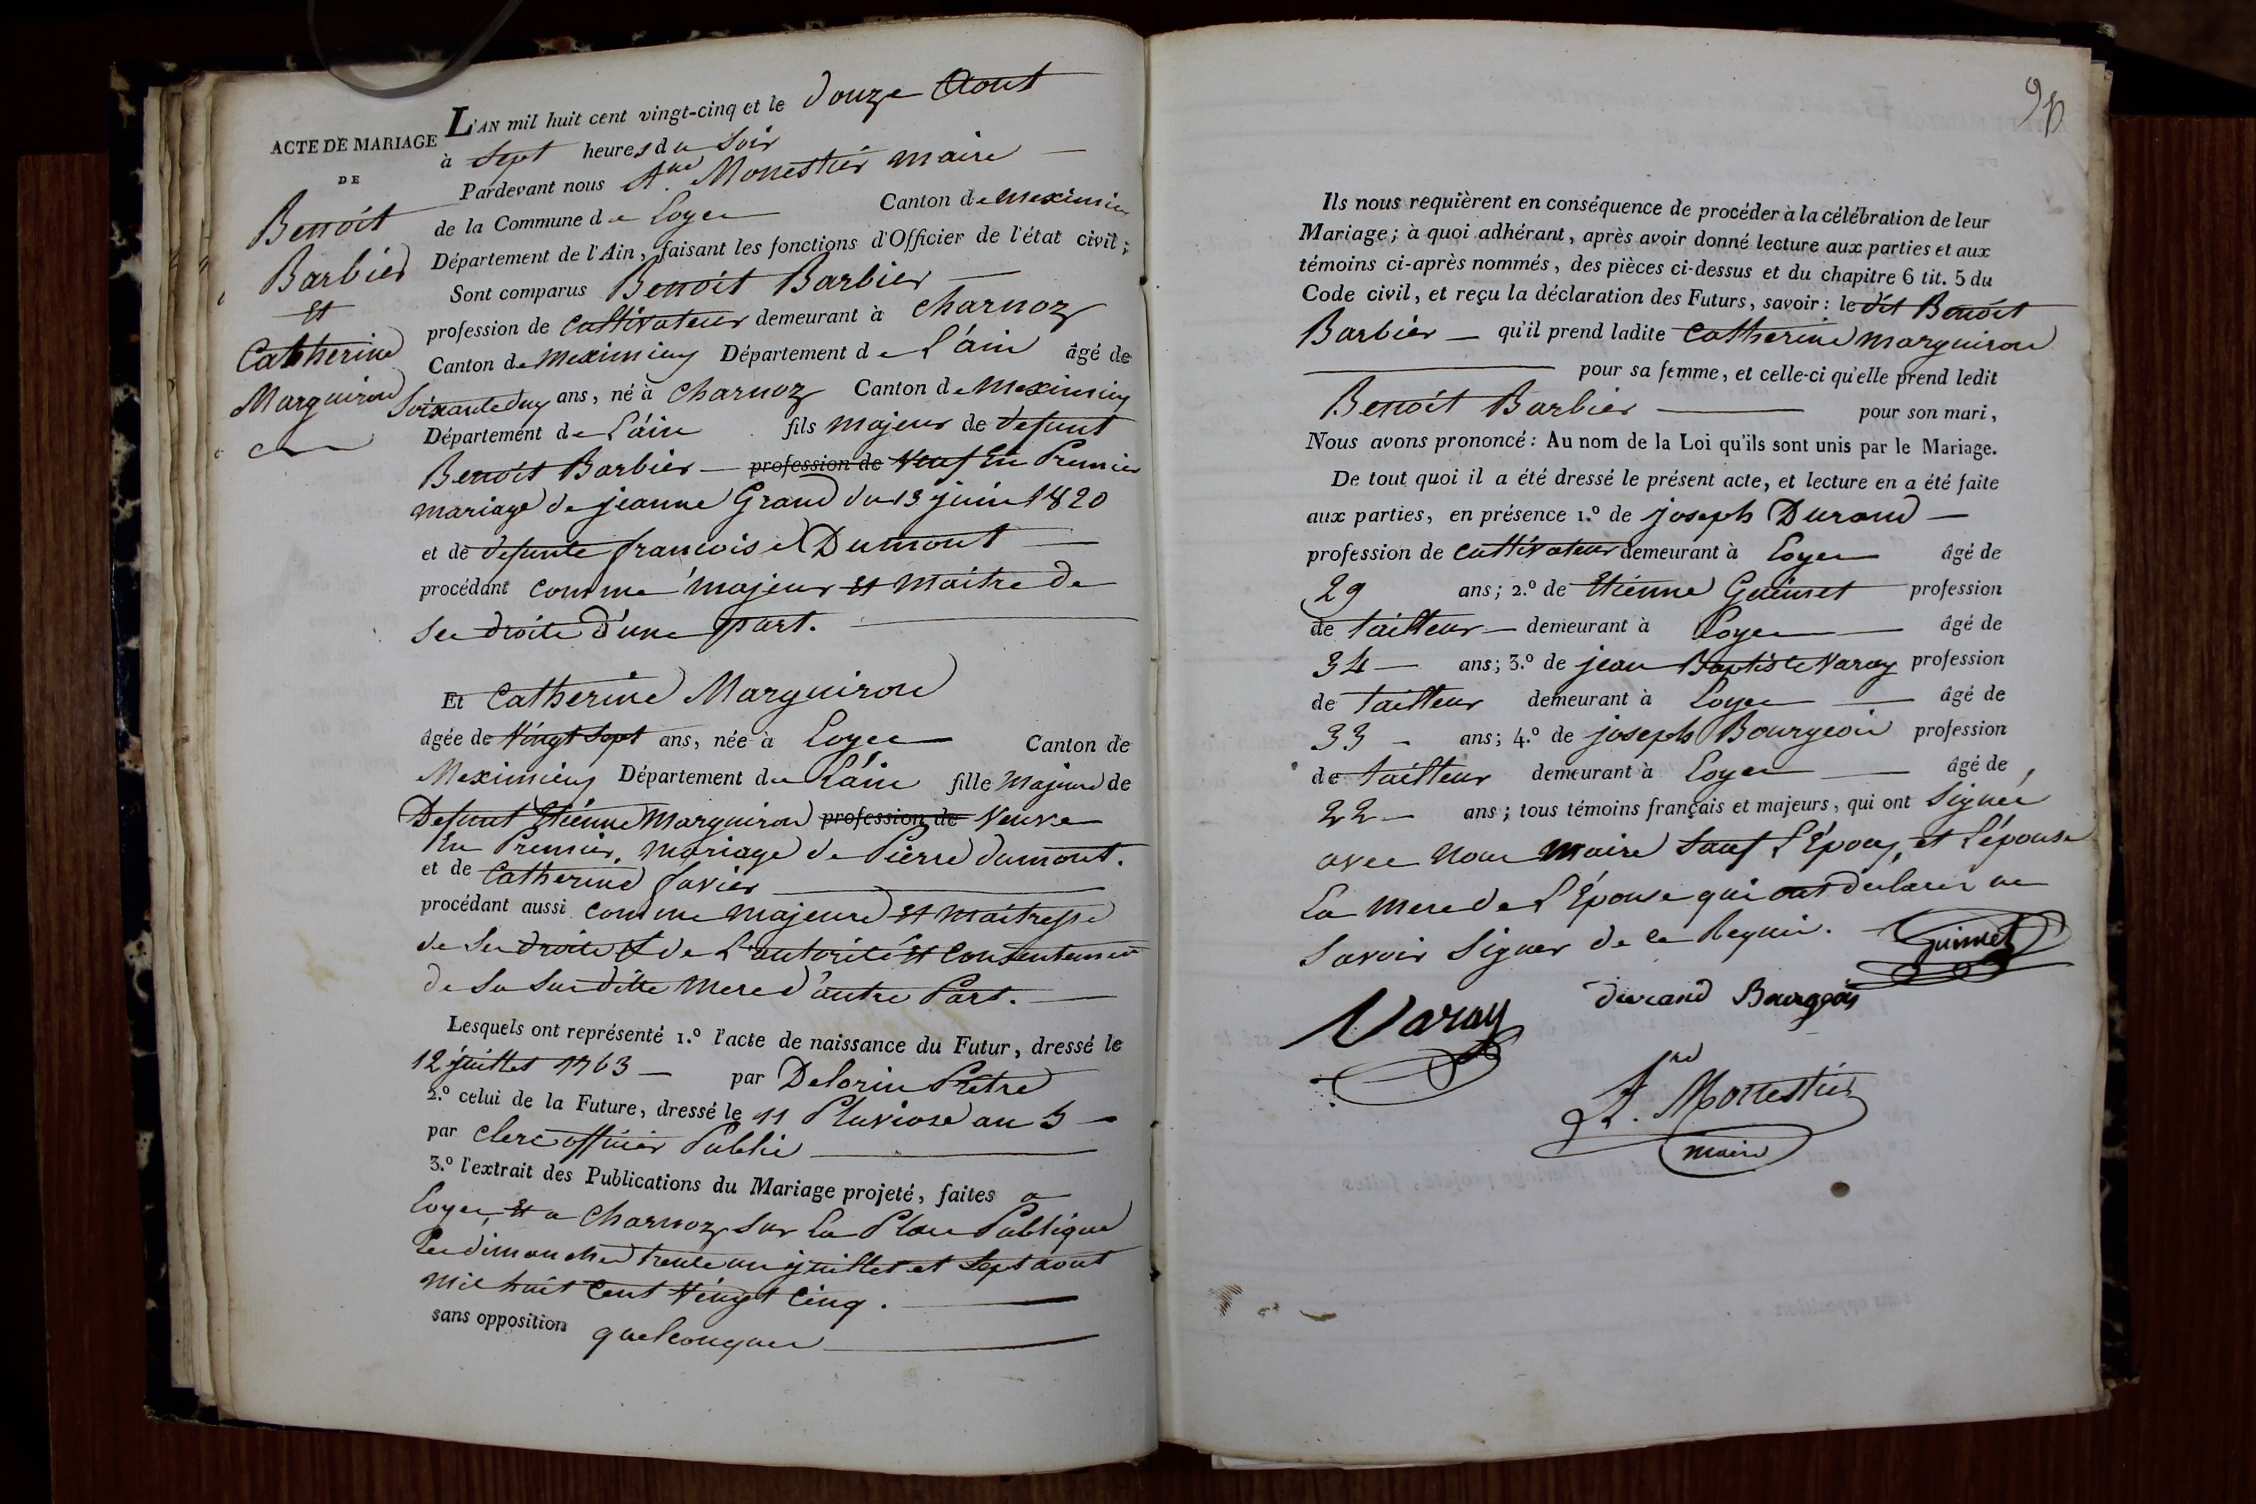 ACTE DE MARIAGE
DE
Benoit
Barbier
et
Catherine
Marguiron
L'AN mil huit cent vingt-cinq et le douze Aout
à Sept heures du Soir
Pardevant nous Ane Monestier maire
de la Commune de Loyes Canton de Meximieu
Département de l'Ain, faisant les fonctions d'Officier de l'état civil;
Sont comparus Benoit Barbier
profession de cultivateur demeurant à Charnoz
Canton de Meximieux Département de L'ain âgé de
Soixante deux ans, né à Charnoz Canton de Meximieux
Département de L'ain fils majeur de defunt
Benoit Barbier profession de Veuf En Premier
mariage de jeanne Grand du 13 juin 1820
et de defunte francoise Dumont
procédant comme majeur et maitre de
ses droits d'une part.
Et Catherine Marguiron
âgée de Vingt Sept ans, née à Loyes Canton de
Meximieux Département de L'ain fille Majeure de
Defunt Etienne Marguiron profession de Veuve
En Premier mariage de Pierre dumont.
et de Catherine favier
procédant aussi comme majeure et maitresse
de ses droits et de L'autorité et Consentement
de sa susditte Mere d'autre Part.
Lesquels ont représenté 1.º l'acte de naissance du Futur, dressé le
12 juillet 1763 par Delorin Prêtre
2.º celui de la Future, dressé le 11 Pluviose an 5
par Clerc officier Public
3.º l'extrait des Publications du Mariage projeté, faites a
Loyes et a Charnoz sur la Place Publique
les dimanches trente un juillet et sept aout
mil huit cent Vingt cinq.
sans opposition quelconques
Ils nous requièrent en conséquence de procéder à la célébration de leur
Mariage; à quoi adhérant, après avoir donné lecture aux parties et aux
témoins ci-après nommés, des pièces ci-dessus et du chapitre 6 tit. 5 du
Code civil, et reçu la déclaration des Futurs, savoir: le dit Benoit
Barbier qu'il prend ladite Catherine Marguiron
pour sa femme, et celle-ci qu'elle prend ledit
Benoit Barbier pour son mari,
Nous avons prononcé: Au nom de la Loi qu'ils sont unis par le Mariage.
De tout quoi il a été dressé le présent acte, et lecture en a été faite
aux parties, en présence 1.º de joseph Durand
profession de cultivateur demeurant à Loyes âgé de
29 ans; 2.º de Etienne Guimet profession
de tailleur demeurant à Loyes âgé de
34 ans; 3.º de jean Baptiste Varay profession
de tailleur demeurant à Loyes âgé de
33 ans; 4.º de joseph Bourgeois profession
de tailleur demeurant à Loyes âgé de
22 ans; tous témoins français et majeurs, qui ont signés
avec nous maire Sauf L'Epoux et L'épouse
La mere de L'Epouse qui ont declarer ne
savoir signer de ce Requis.
Guimet
durand Bourgeois
Varay
Ane. Monestier
maire